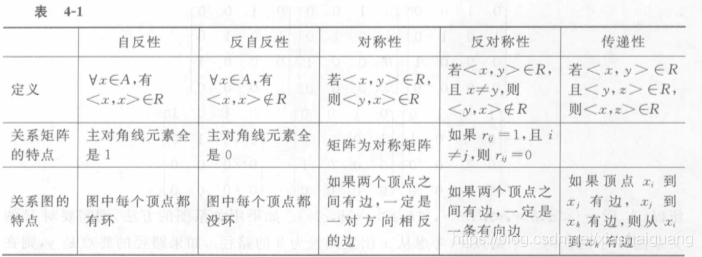 表 4-1
自反性
反自反性
对称性
反对称性
传递性
定义
∀x∈A,有
<x,x>∈R
∀x∈A,有
<x,x>∉R
若<x,y>∈R,
则<y,x>∈R
若<x,y>∈R,
且 x≠y,则
<y,x>∉R
若<x,y>∈R
且<y,z>∈R,
则<x,z>∈R
关系矩阵
的特点
主对角线元素全
是 1
主对角线元素全
是 0
矩阵为对称矩阵
如果 rij=1,且 i
≠j,则 rij=0
关系图的
特点
图中每个顶点都
有环
图中每个顶点都
没环
如果两个顶点之
间有边,一定是
一对方向相反
的边
如果两个顶点之
间有边,一定是
一条有向边
如果顶点 xi 到
xj 有边, xj 到
xk 有边,则从 xi
到 xk 有边